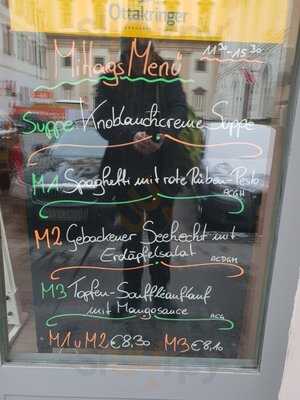 Ottakringer
Mittags Menü
11³⁰-15³⁰
Suppe Knoblauchcreme Suppe
M1 Spaghetti mit rote Rüben-Pesto
ACGH
M2 Gebackener Seehecht mit
Erdäpfelsalat
ACDGM
M3 Topfen-Souffleauflauf
mit Mangosauce
ACG
M1 u M2 €8,30 M3 €8,10